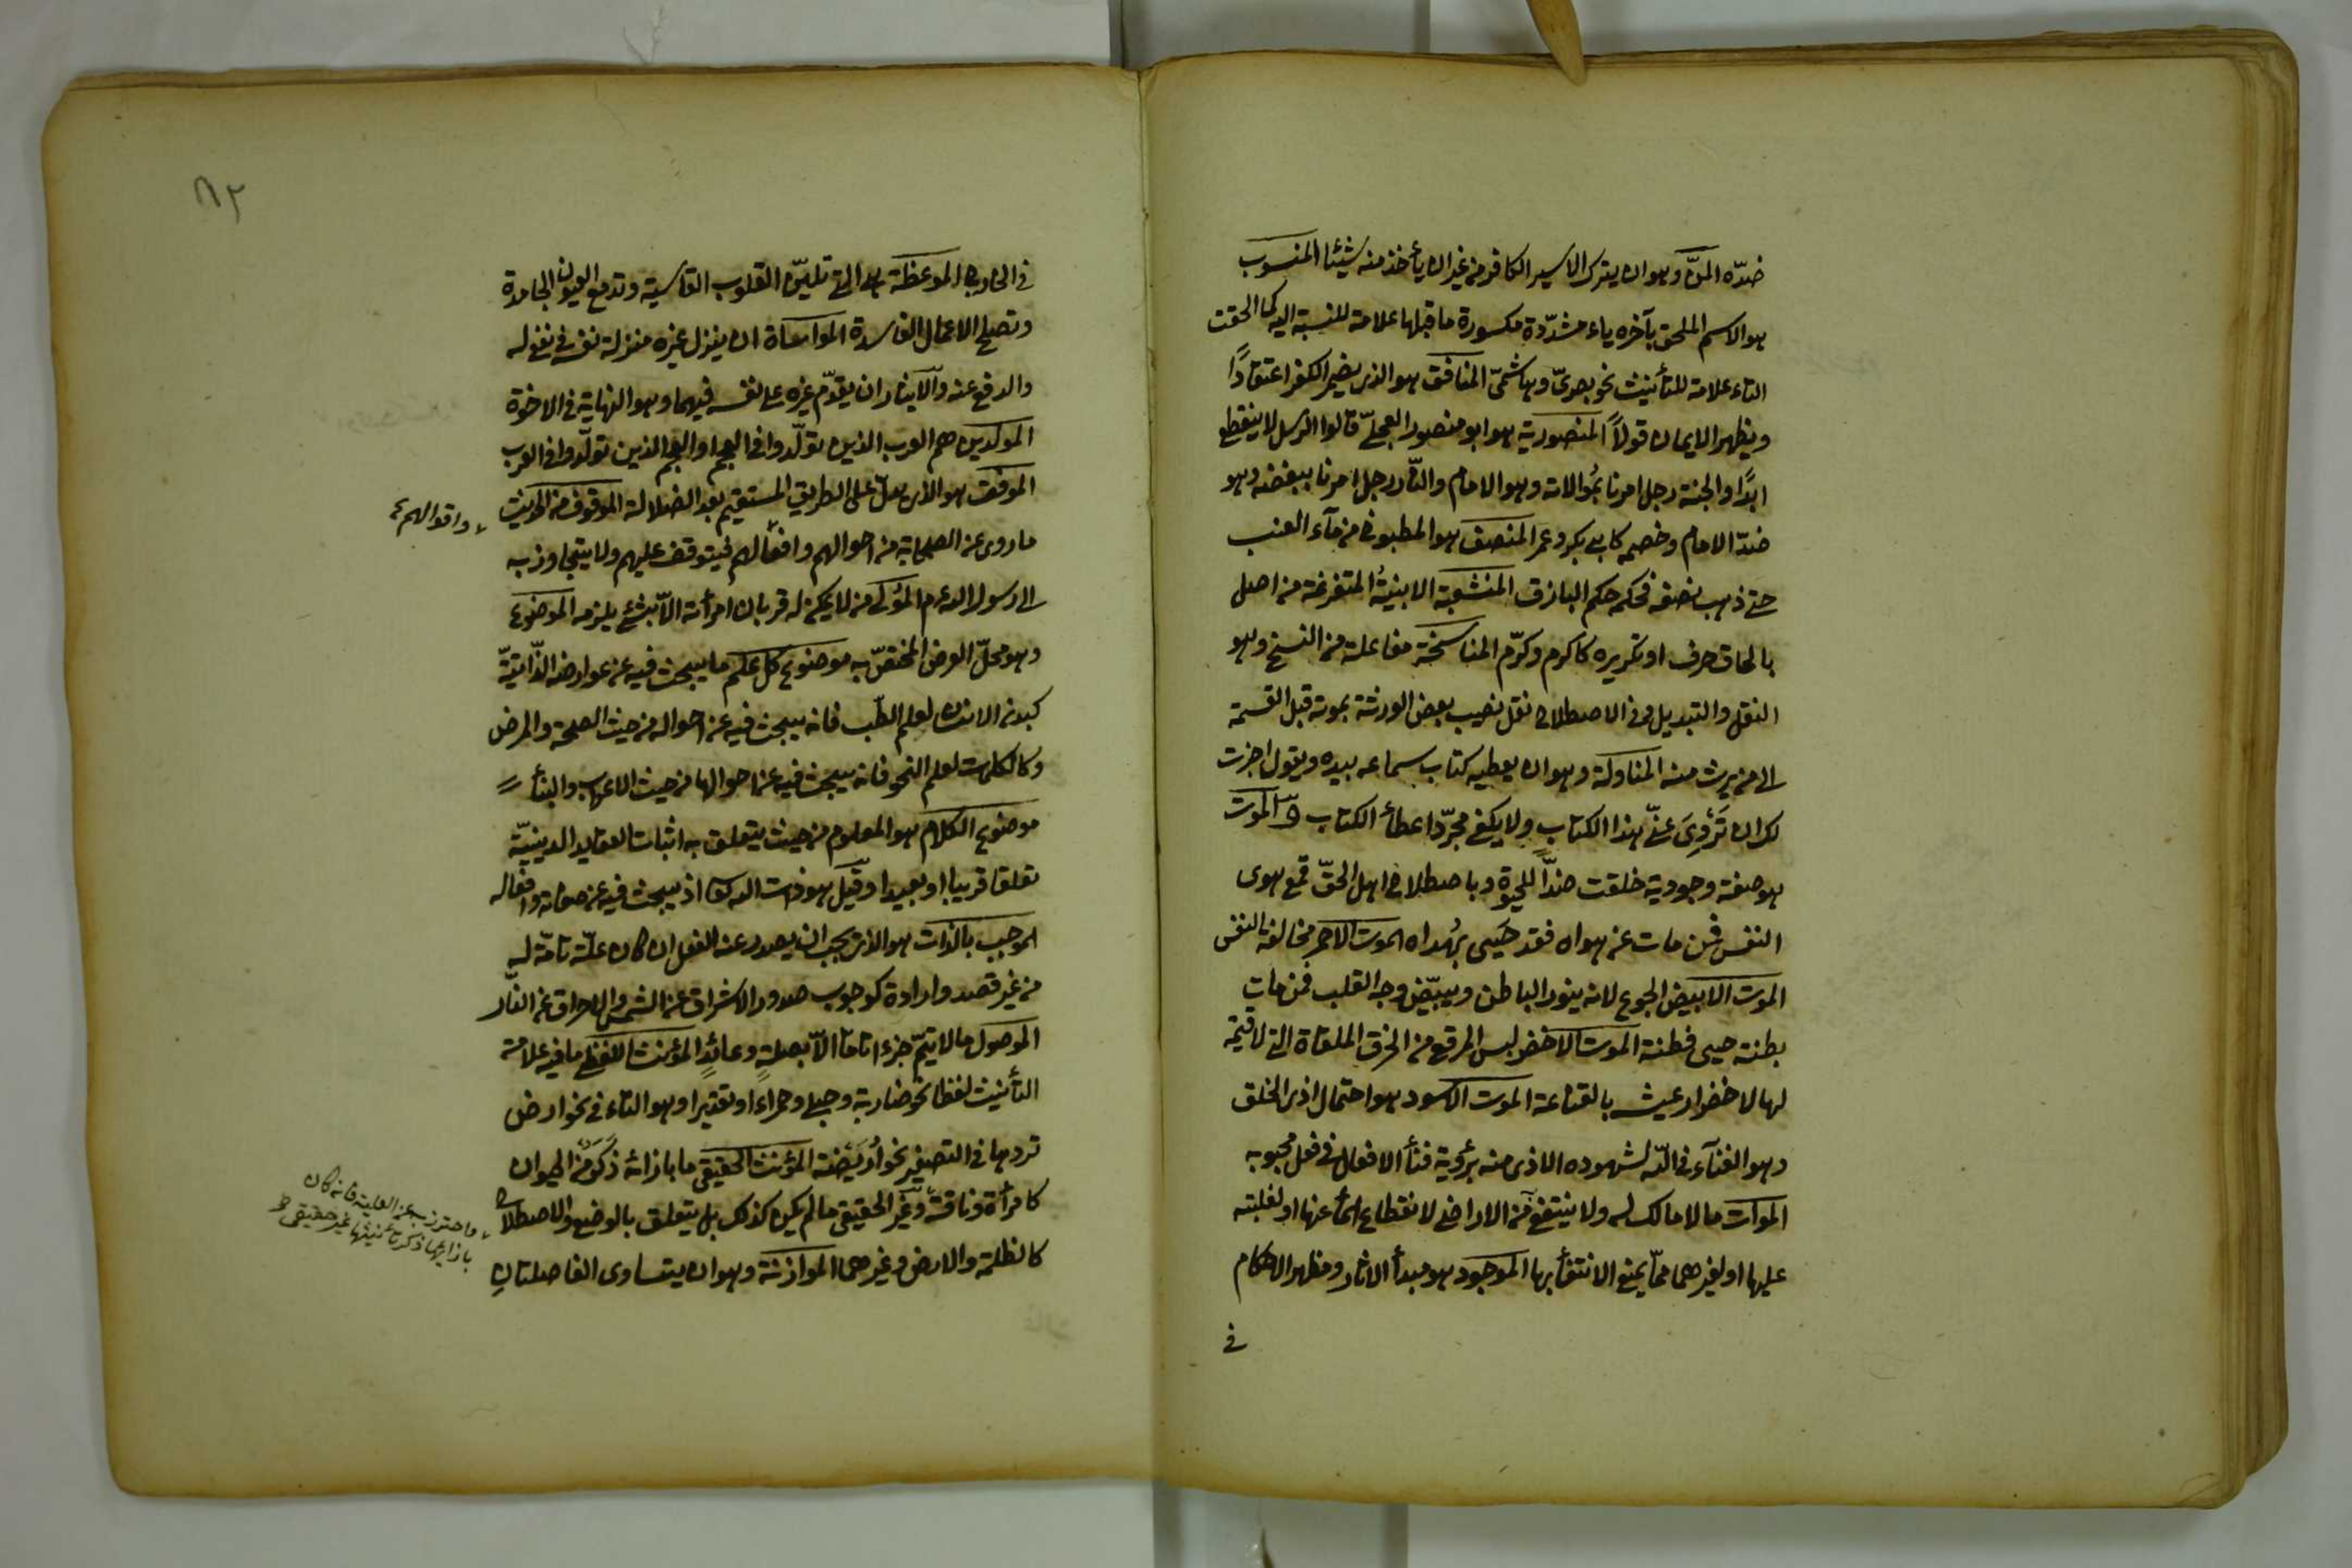 ضدّه المنّ وهو ان يترك الاسير الكافر من غير ان يأخذ منه شيئا المنسوب
هو الاسم الملحق بآخره ياء مشدّدة مكسورة ما قبلها علامة للنسبة اليه كما الحقت
التاء علامة للتأنيث نحو بصريّ وهاشميّ المنافق هو الذى يضمر الكفر اعتقادًا
ويظهر الايمان قولاً المنصورية هو ابو منصور العجلىّ قالوا الرسل لا ينقطع
ابدًا والجنة رجل امرنا بمُوالاته وهو الامام والنّار رجل امرنا ببغضه وهو
ضدّ الامام وخصمه كابى بكر وعمر المنصف هو المطبوخ من مآء العنب
حتى ذهب نصفه فحكمه حكم الباذق المنشعبة الابنيةُ المتفرعة من اصل
بالحاق حرف او تكريره كاكرم وكرّم المناسخة مفاعلة من النسخ وهو
النقل والتبديل وفى الاصطلاح نقل نصيب بعض الورثة بموته قبل القسمة
الى من يرث منه المناولة وهو ان يعطيه كتاب سماعه بيده ويقول اجزت
لك ان تَرْوِىَ عنّى هذا الكتاب ولا يكفى مجرّد اعطأ الكتاب الموت
هو صفة وجودية خلقت ضدّاً للحيوة وباصطلاح اهل الحقّ قمع هوى
النفس فمن مات عن هواه فقد حَيىَ بهُداه الموت الاحمر مخالفة النفس
الموت الابيض الجوع لانه ينور الباطن ويبيّض وجه القلب فمن مات
بطنته حيى فطنته الموت الاخضر لبس المرقع من الخرق الملقاة التى لا قيمة
لها لاخضرار عيشه بالقناعة الموت الاسود هو احتمال اذى الخلق
وهو الفنآء فى اللّه لشهوده الاذى منه برؤية فنأ الافعال فى فعل محبوبه
الموات ما لا مالك له ولا ينتفع من الاراضى لانقطاع المأ عنها او لغلبته
عليها او لغيرهما ممّا يمنع الانتفأ بها الموجود هو مبدأ الآثار ومظهر الاحكام
فى
٨٢
فى الخارج الموعظة هى التى تليّن القلوب القاسية وتدمع العيون الجامدة
وتصلح الاعمال الفاسدة المواساة ان ينزل غيره منزلة نفسه فى نفع له
والدفع عنه والايثار ان يقدّم غيره على نفسه فيهما وهو النهاية فى الاخوة
المولدين هم العرب الذين تولّدوا فى العجم او العجم الذين تولّدوا فى العرب
الموفق هو الذى يدل على الطريق المستقيم بعد الضلالة الموقوف من الحديث
ما روى عن الصحابة من احوالهم وافعالهم فيتوقف عليهم ولا يتجاوز به
واقوالهم
الى رسول الله عم المُولى من لا يمكن له قربان امرأته الاّ بشئ يلزمه الموضوع
وهو محلّ العرض المختصّ به موضوع كل علم ما يبحث فيه عن عوارضه الذّاتيّة
كبدن الانسان لعلم الطّب فانه يبحث فيه عن احواله من حيث الصحة والمرض
وكالكلمات لعلم النحو فانه يبحث فيه عن احوالها من حيث الاعراب والبنأ
موضوع الكلام هو المعلوم من حيث يتعلق به اثبات العقايد الدينيّة
تعلقا قريبا او بعيدا وقيل هو ذات الله تعا اذ يبحث فيه عن صفاته وافعاله
الموجب بالذات هو الذى يجب ان يصدر عنه الفعل ان كان علّة تامّة له
من غير قصد وارادة كوجوب صدور الاشراق عن الشمس والاحراق عن النّار
الموصول ما لا يتمّ جزءا تامّا الاّ بصلةٍ وعائدٍ المؤنث اللفظى ما فيه علامة
التأنيث لفظا نحو ضاربة وحبلى وحمراء او تقديرا وهو التاء فى نحو ارض
تردها فى التصغير نحو أُرَيْضَة المؤنث الحقيقى ما بازائه ذَكَرٌ من الحيوان
كامرأة وناقة وغير الحقيقى ما لم يكن كذلك بل يتعلق بالوضع والاصطلاح
كالظلمة والارض وغيرهما الموازنة وهو ان يتساوى الفاصلتان
بازايها ذكر تأنيثها غير حقيقى